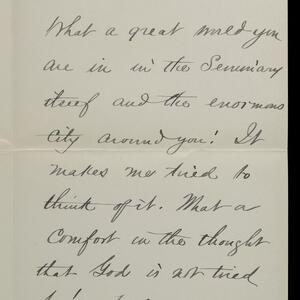 What a great world you
are in in the Seminary
itself and the enormous
city around you! It
makes me tired to
think of it. What a
comfort in the thought
that God is not tired